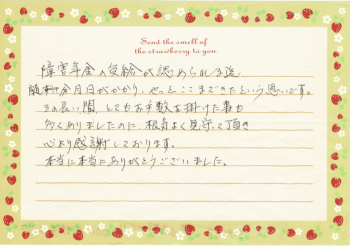 Send the smell of
the strawberry to you
障害年金の受給が認められる迄
随分月日がかかり、やっとここまできたという思いです。
その長い間、とてもお手数を掛けた事も
多くありましたのに、根気よく見守って頂き
心より感謝しております。
本当に本当にありがとうございました。